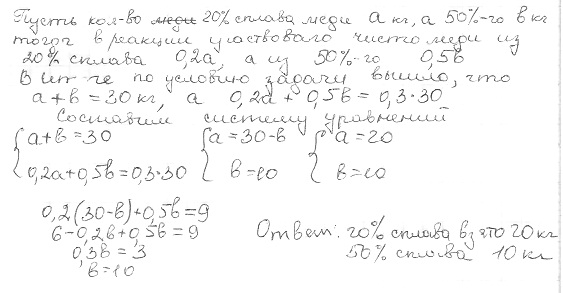 Пусть кол-во меди 20% сплава меди a кг, а 50%-го в кг
тогог в реакции участвовало чисто меди из
20% сплава 0,2a, а из 50%-го 0,5в
В ит-ге по условию задачи вышло, что
a+в = 30 кг, а 0,2a + 0,5в = 0,3·30
Составим систему уравнений
a+в =30 a=30-в a=20
0,2a+0,5в=0,3·30 в=10 в=10
0,2(30-в)+0,5в=9
6-0,2в+0,5в=9
0,3в=3
в=10
Ответ: 20% сплава взято 20 кг
50% сплава 10 кг